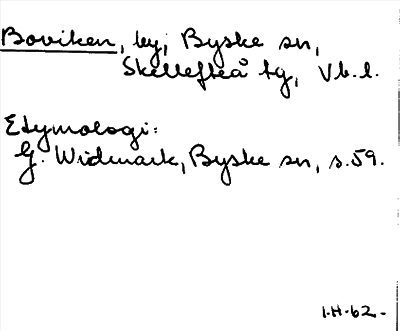 Boviken, by, Byske sn,
Skellefteå tg, Vb. l.
Etymologi:
G. Widmark, Byske sn, s. 59.
1.H.62.-